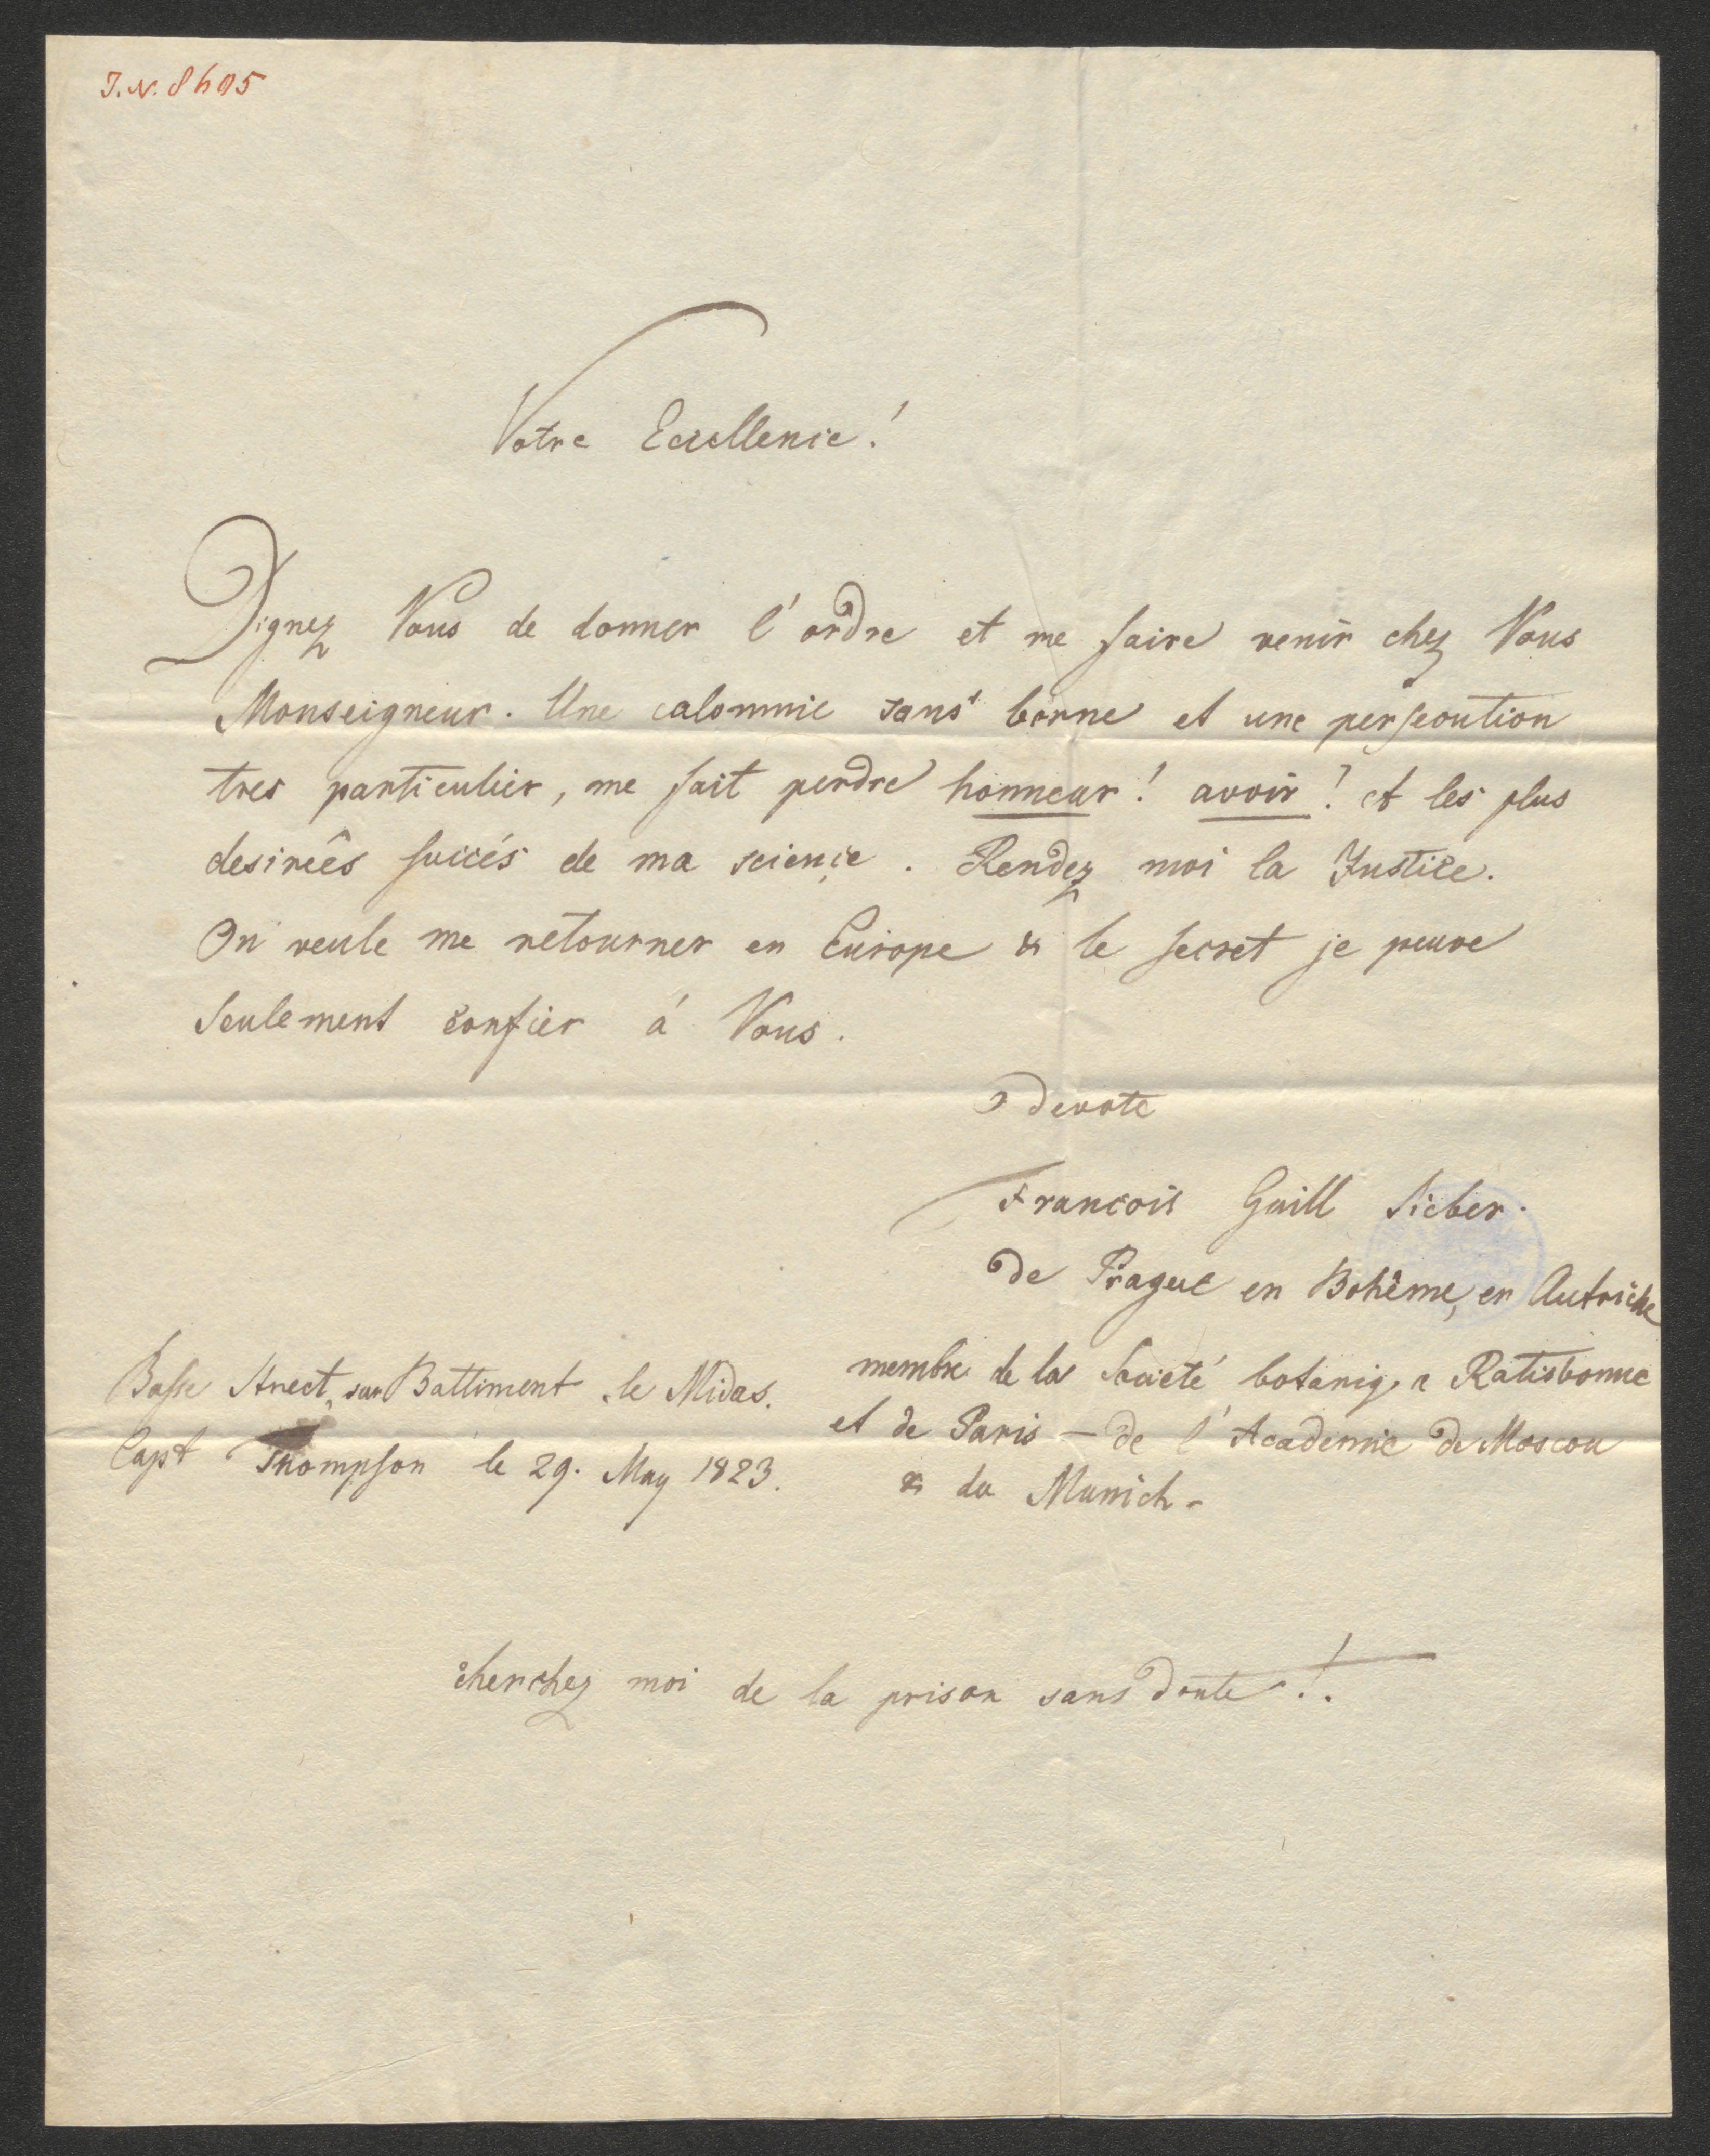 J.N. 8605
Votre Excellence!
Dignez Vous de donner l'ordre et me faire venir chez Vous
Monseigneur. Une calomnie sans borne et une persecution
tres particulier, me fait perdre honneur! avoir! et les plus
desireés succés de ma science. Rendez moi la Justice.
On veule me retourner en Europe & le secret je peuve
seulement confier á Vous.
devote
Francois Guill Sieber.
de Prague en Bohême, en Autriche
membre de la Societé botaniq. a Ratisbonne
et de Paris – de l'Academie de Moscou
& du Munich –
Basse Street, sur Battiment le Midas.
Capt Thompson le 29. May 1823.
cherchez moi de la prison sans doute!.